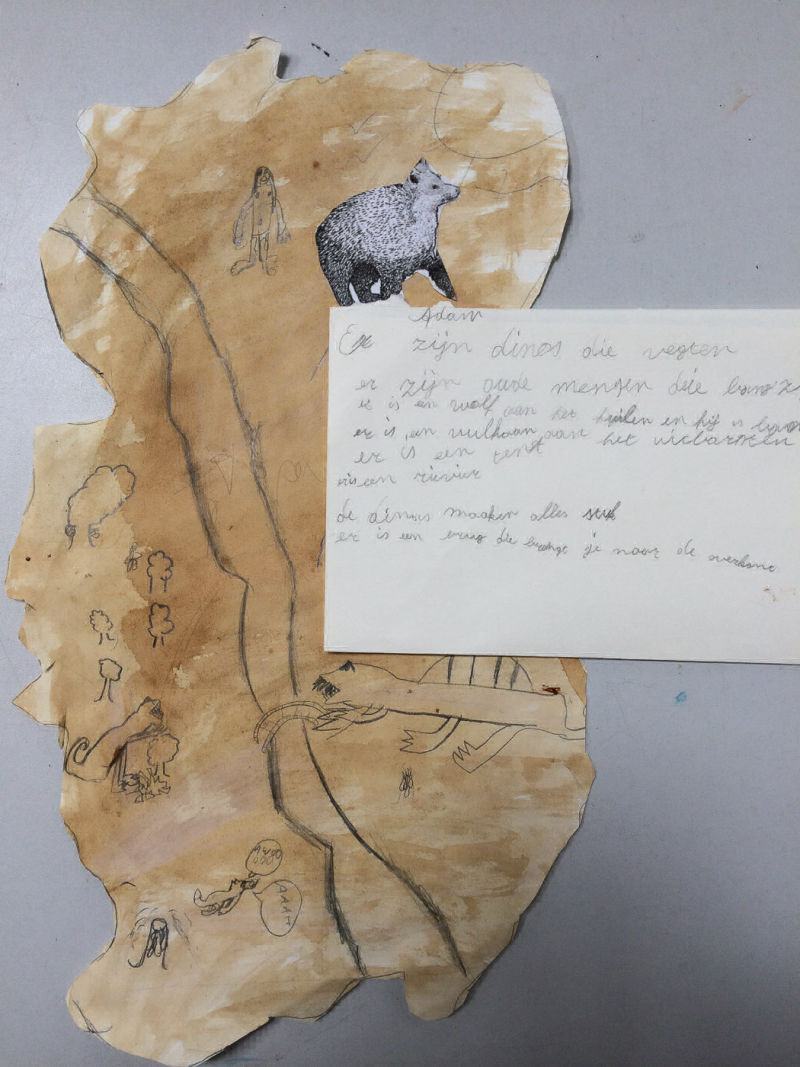 Adam
Er zijn dinos die vegten
er zijn oude mensen die
er is en wolf aan het huilen en hij is
er is en vulkaan aan het uitbarsten
er is een tent
er is een rievier
de dinos maaken alles
er is een brug die brengt je naar de overkant
AAAH